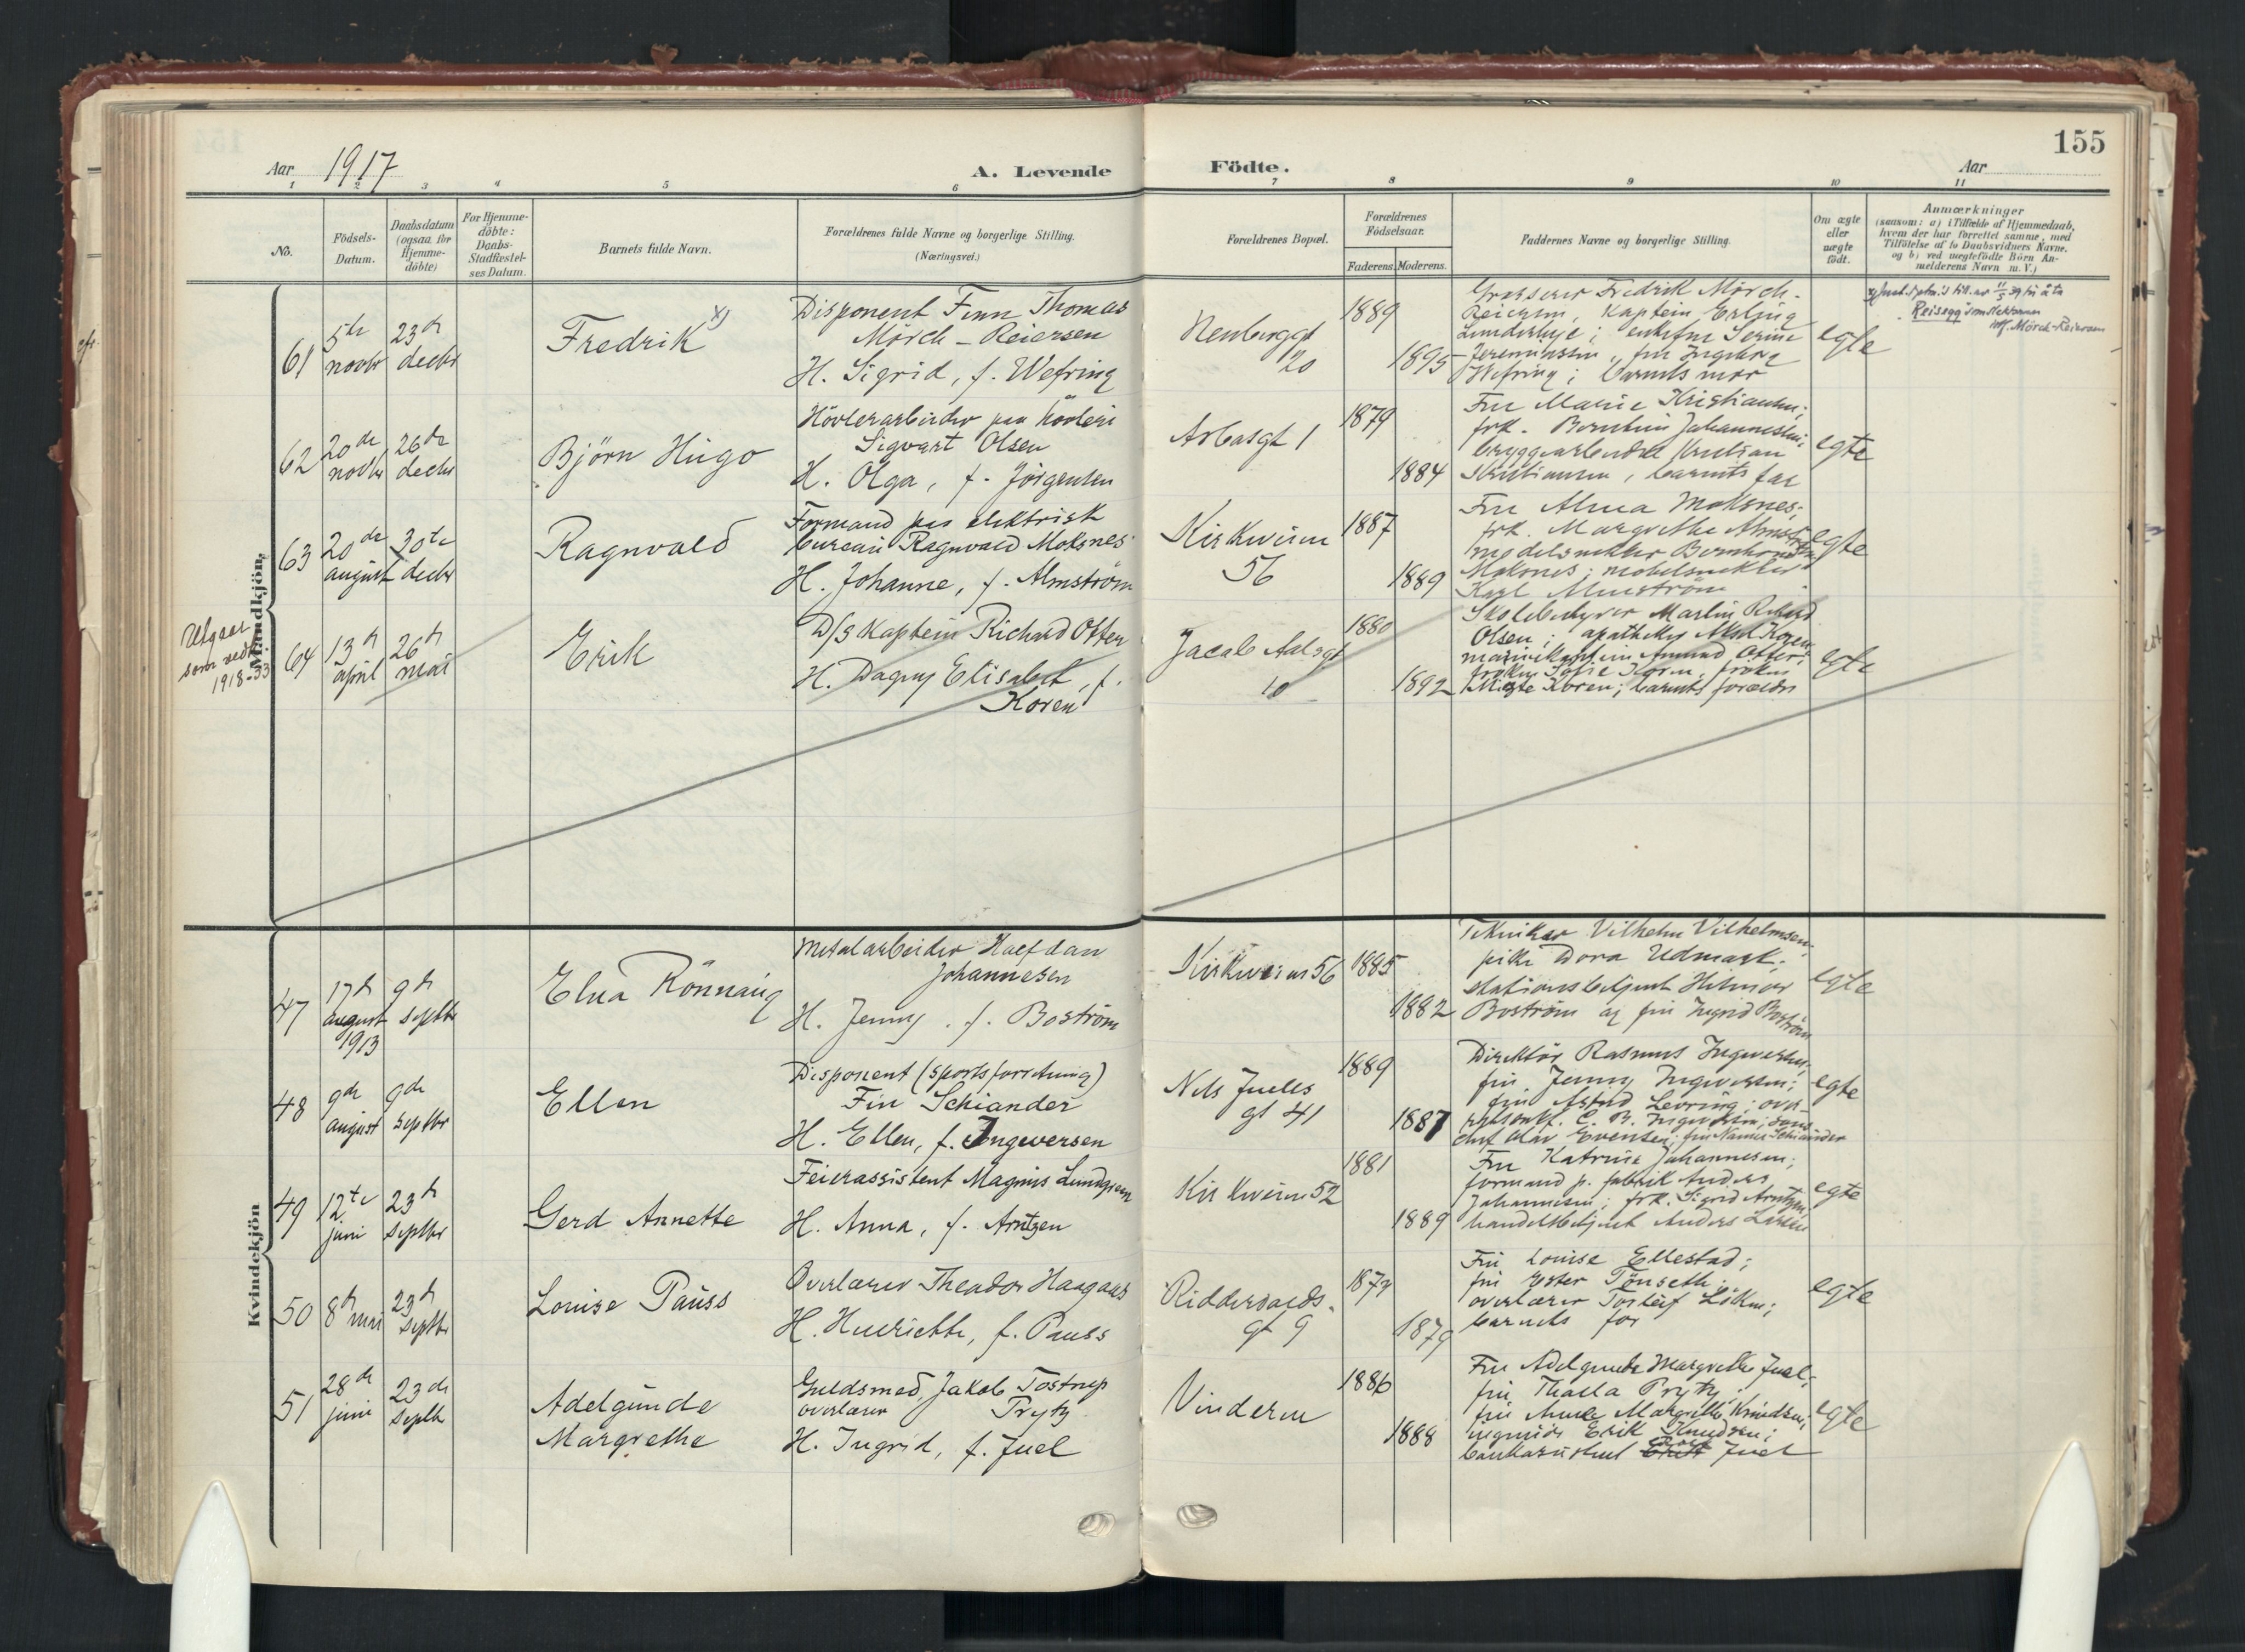 155
Aar 1917
A. Levende
Födte.
Aar
1 2 3 4 5 6 7 8 9 10 11
No.
Födsels-
Datum.
Daabsdatum
(ogsaa for
Hjemme-
döbte)
For Hjemme-
döbte:
Daabs-
Stadfæstel-
ses Datum.
Barnets fulde Navn.
Forældrenes fulde Navne og borgerlige Stilling.
(Næringsvei.)
Forældrenes Bopæl.
Forældrenes
Födselsaar.
Faderens. Moderens.
Faddernes Navne og borgerlige Stilling.
Om ægte
eller
uægte
födt.
Anmærkninger
(saasom: a) i Tilfælde af Hjemmedaab,
hvem der har forrettet samme, med
Tilföielse af to Daabsvidners Navne.
og b) ved uægtefödte Börn An-
melderens Navn m. V.)
Mandkjön
61
5te
novbr
23de
decbr
Fredrik x)
Disponent Finn Thomas
Mörch-Reiersen
H. Sigrid, f. Wefring
Neuberggt
20
1889
1895
Grosserer Fredrik Mörch-
Reiersen, Kaptein Erling
enkefru Serine
fru Ingeborg
Wefring; barnets mor
egte
Reisegg som slektsnavn
Mörch-Reiersen
62
20de
novbr
26de
decbr
Björn Hugo
Hövlerarbeider paa hövleri
Sigvart Olsen
H. Olga, f. Jörgensen
Arbosgt 1
1879
1884
Fru Marie Kristiansen;
frk. Johannessen;
bryggearbeider Kristian
Kristiansen, barnets far
egte
63
20de
august
30te
decbr
Ragnvald
Formand paa elektrisk
bureau Ragnvald Moksnes
H. Johanne, f. Almström
Kirkeveien
56
1887
1889
Fru Alma Moksnes;
frk. Margrethe Almström
modelsnekker Bernhard
Moksnes; mobelsnekker
Karl Almström
egte
Utgaar
som vedk.
1918-33
64
13de
april
26de
mai
Erik
D/S Kaptein Richard Otter
H. Dagny Elisabet, f.
Koren
Jacob Aalsgt
10
1880
1892
Skolebestyrer Martin Rikard
Olsen; apotheker Aksel Koren
marinekaptein Amund Otter;
fröken Sofie Koren, fröken
Koren; barnets forældre
egte
Kvindekjön
47
17de
august
1913
9de
septbr
Elna Rönnaug
Metalarbeider Halfdan
Johannesen
H. Jenny, f. Boström
Kirkeveien 56
1885
1882
Tekniker Vilhelm Vilhelmsen;
pike Dora Udmark;
stationsbetjent Hilmar
Boström og fru Ingrid Boström
egte
48
9de
august
9de
septbr
Ellen
Disponent (sportsforretning)
Finn Schiander
H. Ellen, f. Ingeversen
Nels Juells
gt 41
1889
1887
Direktör Rasmus Ingeversen,
fru Jenny Ingeversen;
fru Astrid Levring; over-
Olav Evensen; fru Nanna Schiander
egte
49
12te
juni
23de
septbr
Gerd Annette
Feierassistent Magnus Lundgren
H. Anna, f. Arntzen
Kirkeveien 52
1881
1889
Fru Katrine Johannesen;
formand p. fabrik Anders
Johannesen; frk. Sigrid Arntzen,
handelsbetjent Anders Larsen
egte
50
8de mai
23de
septbr
Louise Pauss
Overlærer Theodor Haagaas
H. Henriette, f. Pauss
Riddervolds-
gt 9
1879
Fru Louise Ellestad;
fru Ester Tönseth;
overlærer Torleif Löken;
barnets far
egte
51
28de
juni
23de
septbr
Adelgunde
Margrethe
Guldsmed, Jakob Tostrup
overlærer Prytz
H. Ingrid, f. Juel
Vinderen
1886
1888
Fru Adelgunde Margrethe Juel;
fru Thalla Prytz;
fru Margrethe Knudsen;
ingeniör Erik Knudsen;
bankassistent Juel
egte